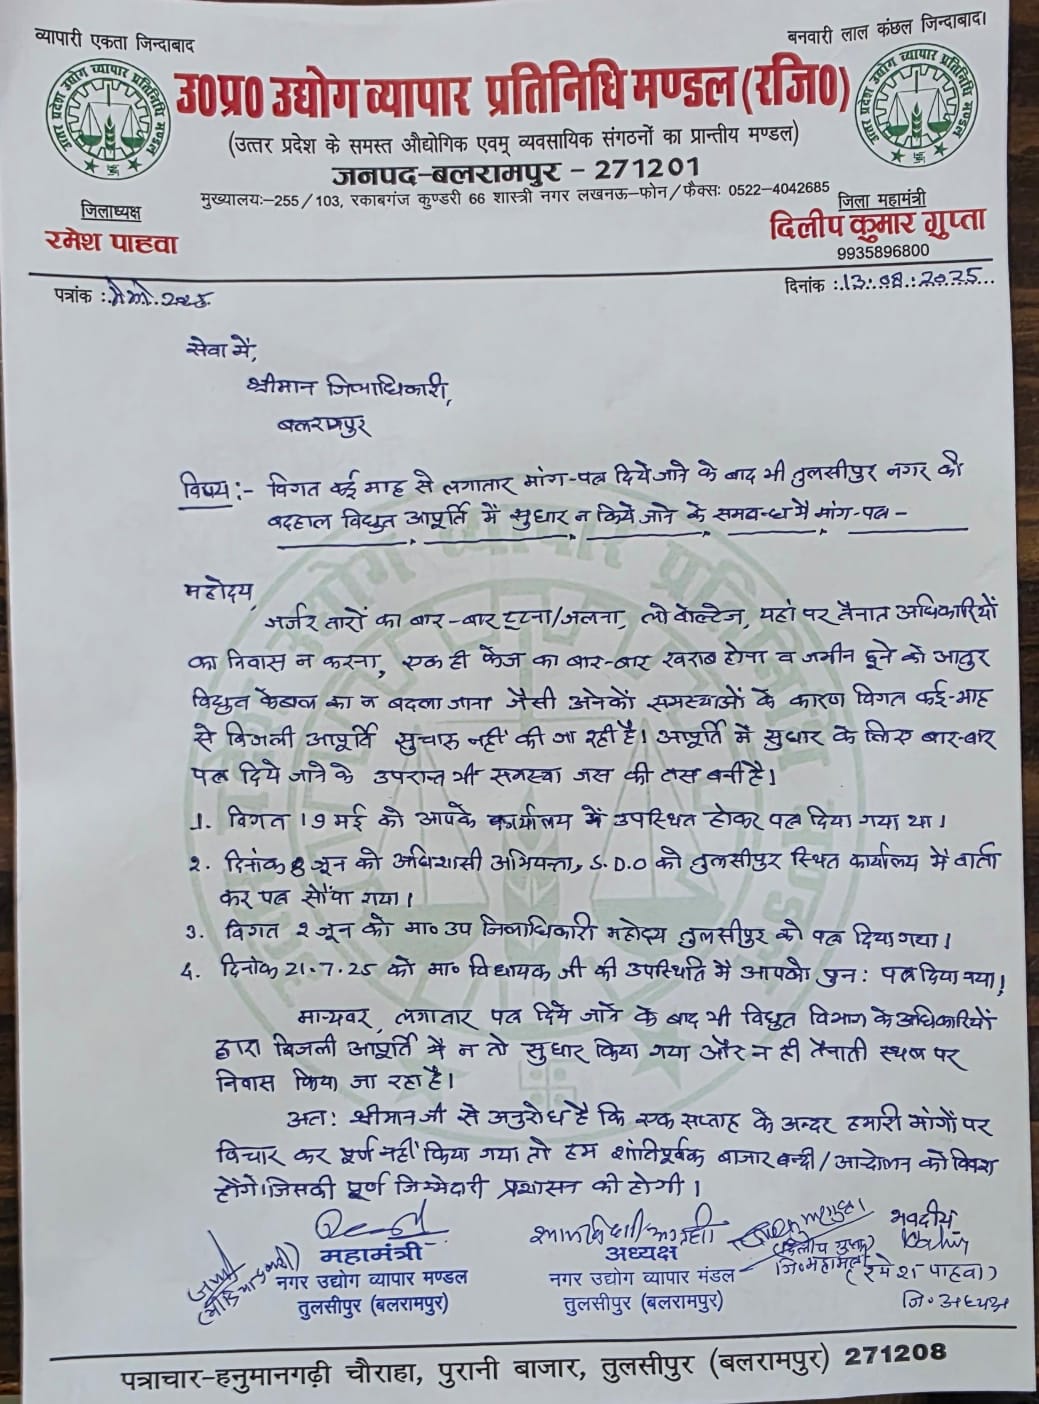 व्यापारी एकता जिन्दाबाद
बनवारी लाल कंछल जिन्दाबाद।
उत्तर प्रदेश उद्योग व्यापार प्रतिनिधि मण्डल
उत्तर प्रदेश उद्योग व्यापार प्रतिनिधि मण्डल
उ०प्र० उद्योग व्यापार प्रतिनिधि मण्डल (रजि०)
(उत्तर प्रदेश के समस्त औद्योगिक एवम् व्यवसायिक संगठनों का प्रान्तीय मण्डल)
जनपद-बलरामपुर - 271201
मुख्यालयः-255/103, रकाबगंज कुण्डरी 66 शास्त्री नगर लखनऊ-फोन/फैक्सः 0522-4042685
जिलाध्यक्ष
रमेश पाहवा
जिला महामंत्री
दिलीप कुमार गुप्ता
9935896800
पत्रांक :
दिनांक : 13.08.2025
सेवा में,
श्रीमान जिलाधिकारी,
बलरामपुर
विषय:- विगत कई माह से लगातार मांग-पत्र दिये जाने के बाद भी तुलसीपुर नगर की
बदहाल विद्युत आपूर्ति में सुधार न किये जाने के समबन्ध मे मांग-पत्र -
महोदय,
जर्जर तारों का बार-बार टूटना/जलना, लो वोल्टेज, यहां पर तैनात अधिकारियों
का निवास न करना, एक ही फेज का बार-बार खराब होना व जमीन छूने को आतुर
विद्युत केबाल का न बदला जाना जैसी अनेकों समस्याओं के कारण विगत कई-माह
से बिजली आपूर्ति सुचारू नहीं की जा रही है। आपूर्ति में सुधार के लिए बार-बार
पत्र दिये जाने के उपरान्त भी समस्या जस की तस बनी है।
1. विगत 19 मई को आपके कार्यालय में उपस्थित होकर पत्र दिया गया था।
2. दिनांक 8 जून को अधिशासी अभियन्ता, S.D.O को तुलसीपुर स्थित कार्यालय में वार्ता
कर पत्र सौंपा गया।
3. विगत 2 जून को मा० उप जिलाधिकारी महोदय तुलसीपुर को पत्र दिया गया।
4. दिनांक 21.7.25 को मा० विधायक जी की उपस्थिति में आपको पुन: पत्र दिया गया।
मान्यवर, लगातार पत्र दिये जाने के बाद भी विद्युत विभाग के अधिकारियों
द्वारा बिजली आपूर्ति में न तो सुधार किया गया और न ही तैनाती स्थल पर
निवास किया जा रहा है।
अत: श्रीमान जी से अनुरोध है कि एक सप्ताह के अन्दर हमारी मांगों पर
विचार कर पूर्ण नहीं किया गया तो हम शांतिपूर्वक बाजार बन्दी/आन्दोलन को विवश
होंगे। जिसकी पूर्ण जिम्मेदारी प्रशासन की होगी।
भवदीय
महामंत्री
नगर उद्योग व्यापार मण्डल
तुलसीपुर (बलरामपुर)
अध्यक्ष
नगर उद्योग व्यापार मंडल
तुलसीपुर (बलरामपुर)
(दिलीप गुप्ता)
जि० महामंत्री
(रमेश पाहवा)
जि० अध्यक्ष
पत्राचार-हनुमानगढ़ी चौराहा, पुरानी बाजार, तुलसीपुर (बलरामपुर) 271208